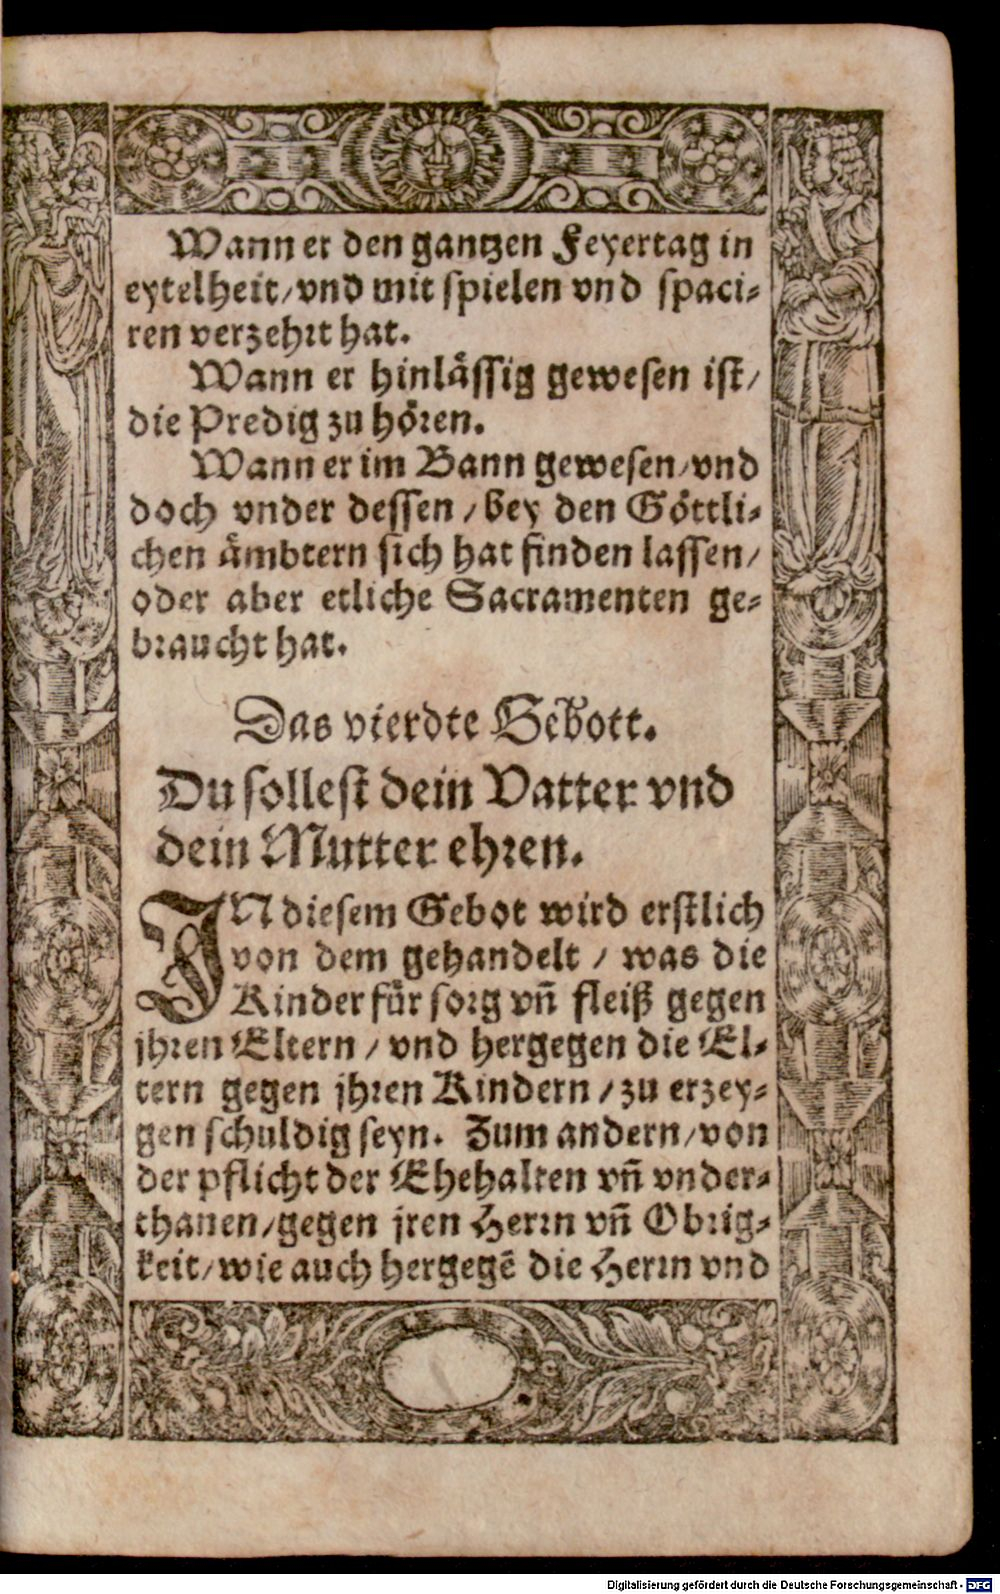 Wann er den gantzen Feyertag in
eytelheit/ vnd mit spielen vnd spaci-
ren verzehrt hat.
Wann er hinlässig gewesen ist/
die Predig zu hören.
Wann er im Bann gewesen/ vnd
doch vnder dessen / bey den Göttli-
chen ämbtern sich hat finden lassen/
oder aber etliche Sacramenten ge-
braucht hat.
Das vierdte Gebott.
Du sollest dein Vatter vnd
dein Mutter ehren.
IN diesem Gebot wird erstlich
von dem gehandelt / was die
Kinder für sorg vñ fleiß gegen
jhren Eltern / vnd hergegen die El-
tern gegen jhren Kindern / zu erzey-
gen schuldig seyn. Zum andern/ von
der pflicht der Ehehalten vñ vnder-
thanen/ gegen jren Herrn vñ Obrig-
keit/ wie auch hergegē die Herrn vnd
Digitalisierung gefördert durch die Deutsche Forschungsgemeinschaft - DFG